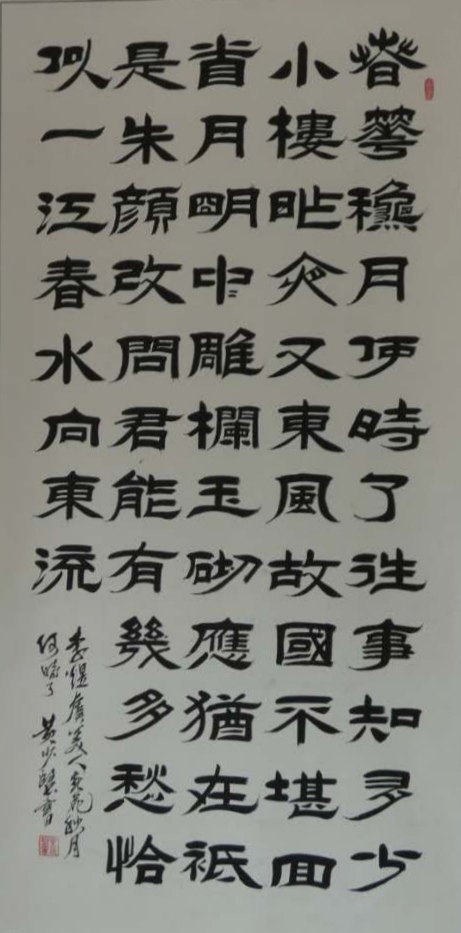 春華穐月何時了往事知多少
小樓昨夜又東風故國不堪回
首月明中雕欄玉砌應猶在祇
是朱顔改問君能有幾多愁恰
似一江春水向東流
李煜虞美人春花秋月
何時了 黄少賢書